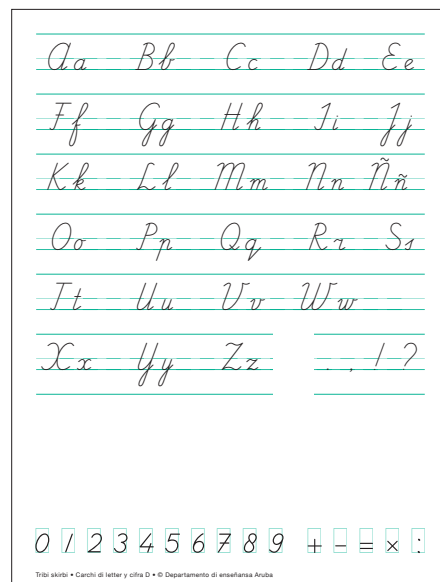 Aa Bb Cc Dd Ee
Ff Gg Hh Ii Jj
Kk Ll Mm Nn Ññ
Oo Pp Qq Rr Ss
Tt Uu Vv Ww
Xx Yy Zz . , ! ?
0 1 2 3 4 5 6 7 8 9 + - = × :
Tribi skirbi • Carchi di letter y cifra D • © Departamento di enseñansa Aruba